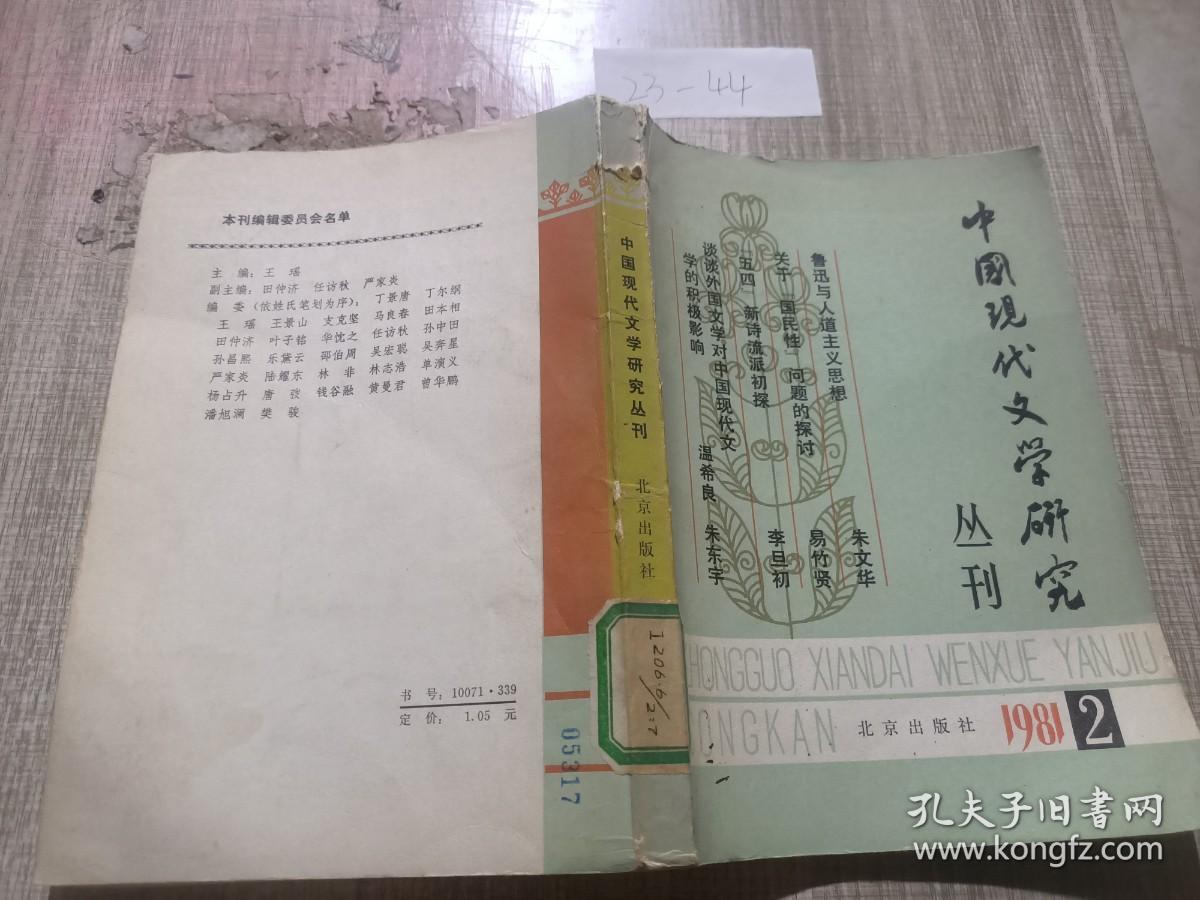 23-44
本刊编辑委员会名单
主 编：王 瑶
副主编：田仲济 任访秋 严家炎
编 委（依姓氏笔划为序）：丁景唐 丁尔纲
王 瑶 王景山 支克坚 马良春 田本相
田仲济 叶子铭 华忱之 任访秋 孙中田
孙昌熙 乐黛云 邵伯周 吴宏聪 吴奔星
严家炎 陆耀东 林 非 林志浩 单演义
杨占升 唐 弢 钱谷融 黄曼君 曾华鹏
潘旭澜 樊 骏
书 号：10071·339
定 价： 1.05 元
中国现代文学研究丛刊
北京出版社
I206.6/2:7
05317
中國现代文学研究
丛刊
鲁迅与人道主义思想 朱文华
关于「国民性」问题的探讨 易竹贤
「五四」新诗流派初探 李旦初
谈谈外国文学对中国现代文
学的积极影响 温希良 朱东宇
HONGGUO XIANDAI WENXUE YANJIU
ONGKAN
北京出版社
1981 2
孔夫子旧书网
www.kongfz.com